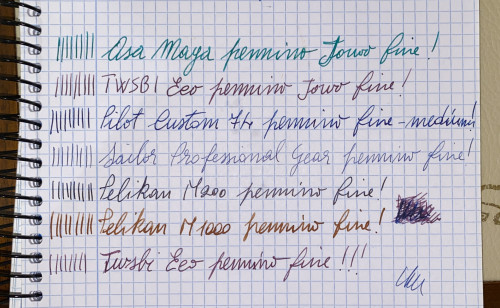 Asa Maga pennino Jowo fine!
TWSBI Eco pennino Jowo fine!
Pilot Custom 74 pennino fine-medium!
Sailor Professional Gear pennino fine!
Pelikan M200 pennino fine!
Pelikan M1000 pennino fine!
Twsbi Eco pennino fine!!!